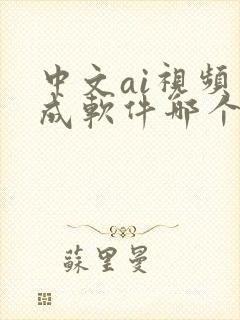 中文ai視頻
成軟件哪个
蘇里曼